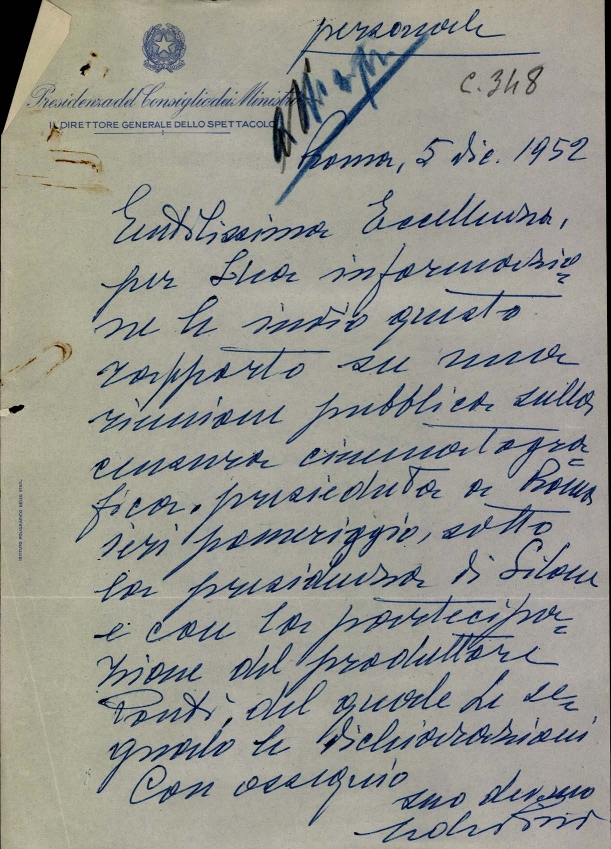 personale
c. 348
Presidenza del Consiglio dei Ministri
IL DIRETTORE GENERALE DELLO SPETTACOLO
Roma, 5 dic. 1952
Gentilissima Eccellenza,
per Sua informazio=
ne Le invio questo
rapporto su una
riunione pubblica sulla
censura cinematogra=
fica, presieduta a Roma
ieri pomeriggio, sotto
la presidenza di Silone
e con la partecipa=
zione del produttore
Ponti, del quale Le se=
gnalo le dichiarazioni
Con ossequio
suo dev.mo